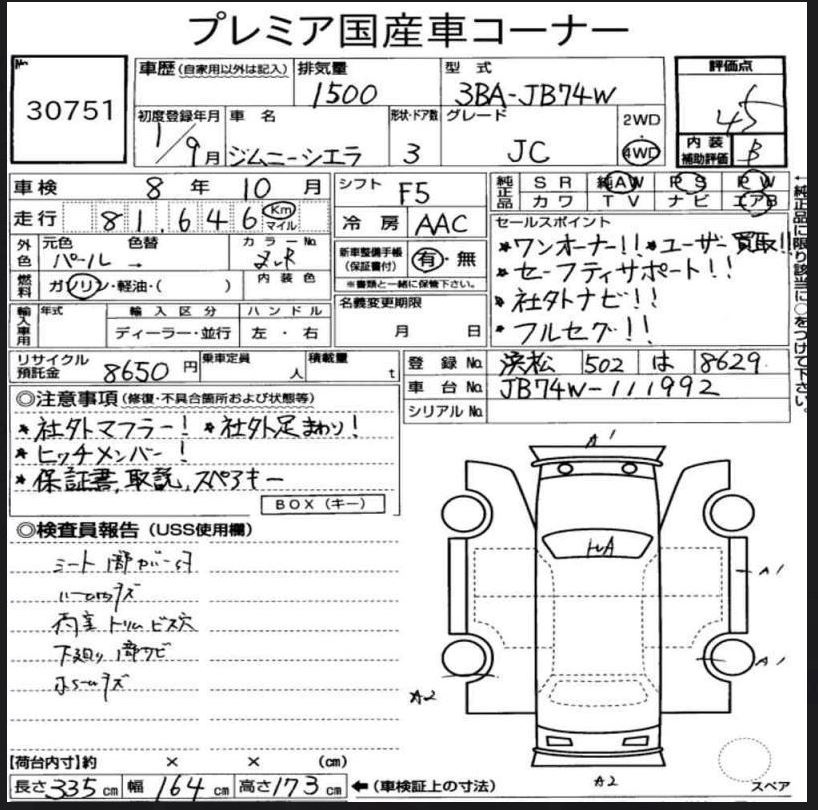 プレミア国産車コーナー
No.
30751
車歴(自家用以外は記入)
排気量
1500
型式
3BA-JB74W
評価点
4.5
初度登録年月
1/9月
車名
ジムニーシエラ
形状・ドア数
3
グレード
JC
2WD
4WD
内装
補助評価
B
車検 8年10月
シフト F5
純正品 SR 純AW PS PW
カワ TV ナビ エアB
走行 81,646 Km
マイル
冷房 AAC
セールスポイント
外色 元色 色替 カラーNo.
パール → ZVR
新車整備手帳
(保証書付)
有・無
※書類と一緒に保管下さい。
*ワンオーナー!! *ユーザー買取!!
*セーフティサポート!!
*社外ナビ!!
*フルセグ!!
燃料 ガソリン・軽油・( )
内装色
輸入車用 年式 輸入区分 ハンドル
ディーラー・並行 左・右
名義変更期限
月 日
リサイクル
預託金
8650円
乗車定員
人
積載量
t
登録No. 浜松 502 は 8629
車台No. JB74W-111992
シリアルNo.
←純正品に限り該当に○をつけて下さい。
◎注意事項(修復・不具合箇所および状態等)
*社外マフラー! *社外足まわり!
*ヒッチメンバー!
*保証書、取説、スペアキー
BOX(キー)
◎検査員報告(USS使用欄)
シート
両室トリムビス穴
下廻り1部サビ
ホールキズ
A1
A1
A1
A2
A2
【荷台内寸】約 × × (cm)
長さ335cm 幅164cm 高さ173cm ←(車検証上の寸法)
スペア